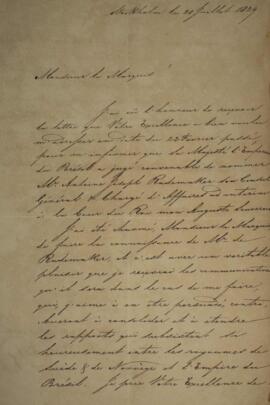 Stockholm le 20 Juillet 1829
Monsieur le Marquis
J'ai eu l'honneur de recevoir
la lettre que Votre Excellence a bien voulu
m'adresser en date du 22 Fevrier passé,
pour m'informer que Sa Majesté l'Empereur
du Bresil a jugé convenable de nommer
Mr. Antoine Joseph Rademaker Son Consul
Général & Chargé d'Affaires ad interim
à la Cour du Roi mon Auguste Souverain
J'ai été charmé, Monsieur le Marquis,
de faire la connaissance de Mr. de
Rademaker, & c'est avec un veritable
plaisir que je recevrai les communications
qu'il sera dans le cas de me faire,
qui, j'aime à en être persuadé, contri-
bueront à consolider & à étendre
les rapports qui subsistent si
heureusement entre les royaumes de
Suède & de Norvège et l'Empire du
Bresil. Je prie Votre Excellence de